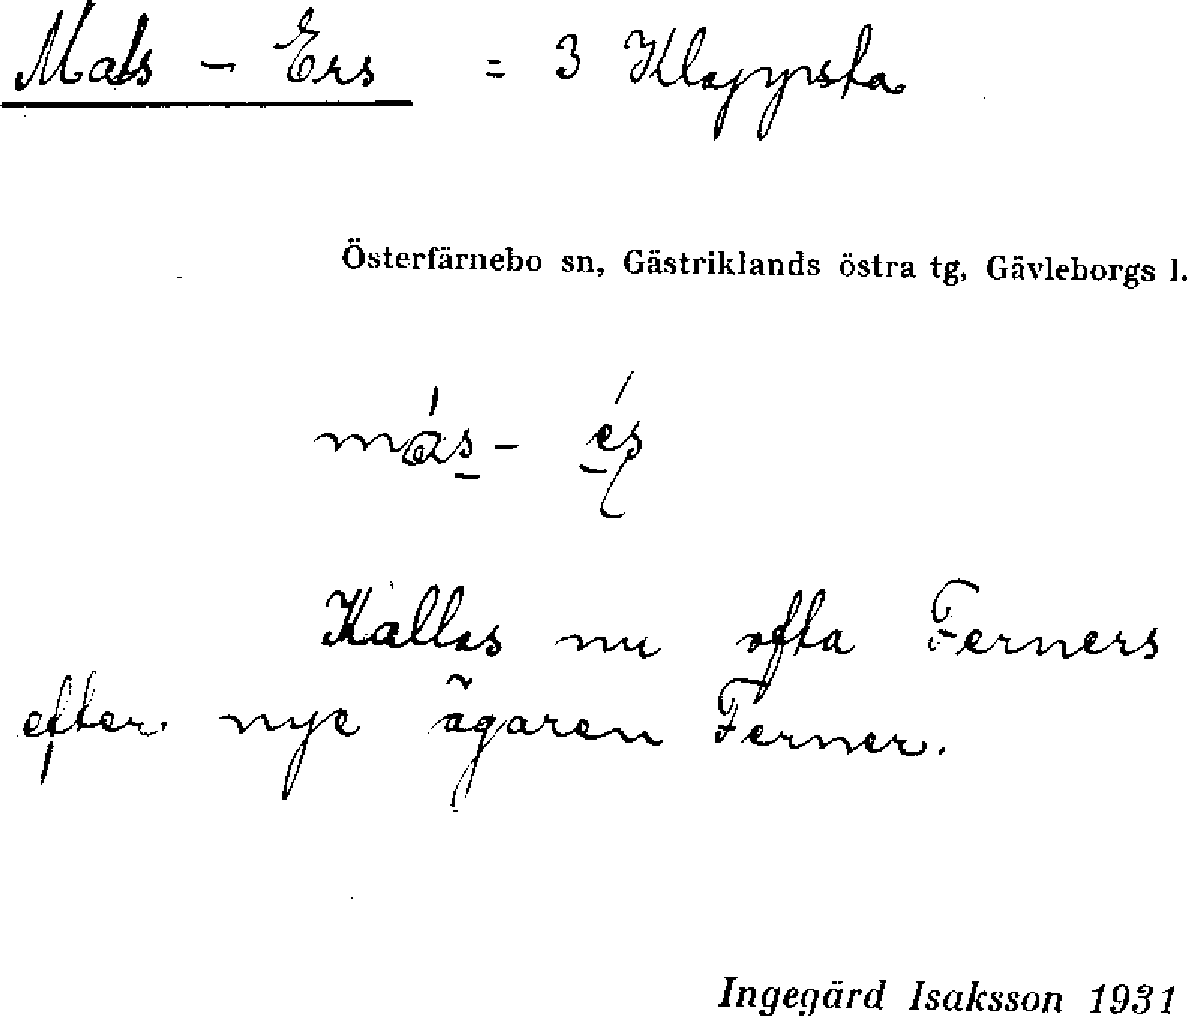 Mats - Ers = 3 Klappsta
Österfärnebo sn, Gästriklands östra tg, Gävleborgs l.
más- és
Kallas nu ofta Ferners
efter nye ägaren Ferner.
Ingegärd Isaksson 1931